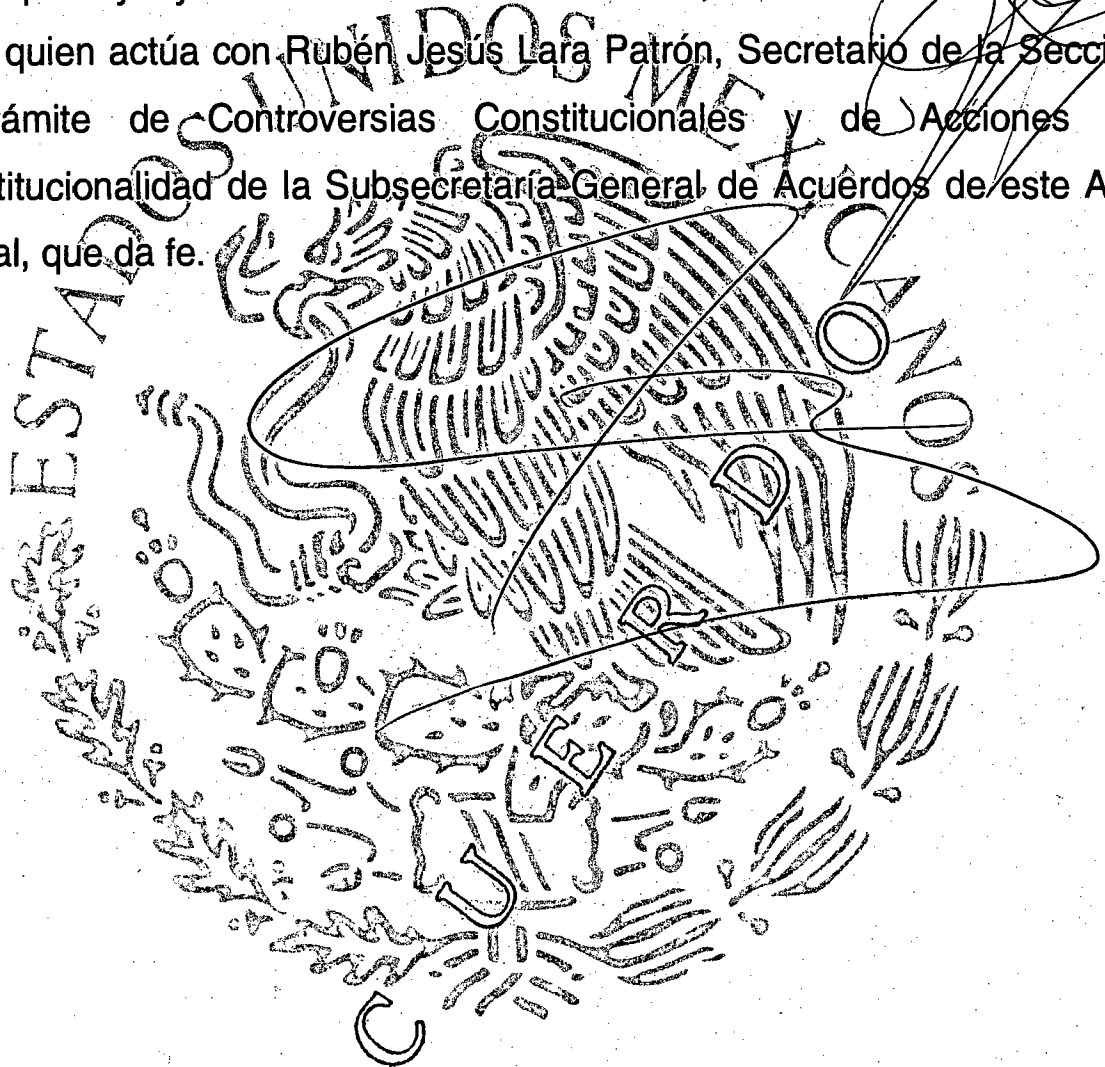 quien actúa con Rubén Jesús Lara Patrón, Secretario de la Secci
ámite de Controversias Constitucionales y de Acciones
titucionalidad de la Subsecretaría General de Acuerdos de este A
al, que da fe.
ESTADOS UNIDOS MEXICANOS
CUERDO